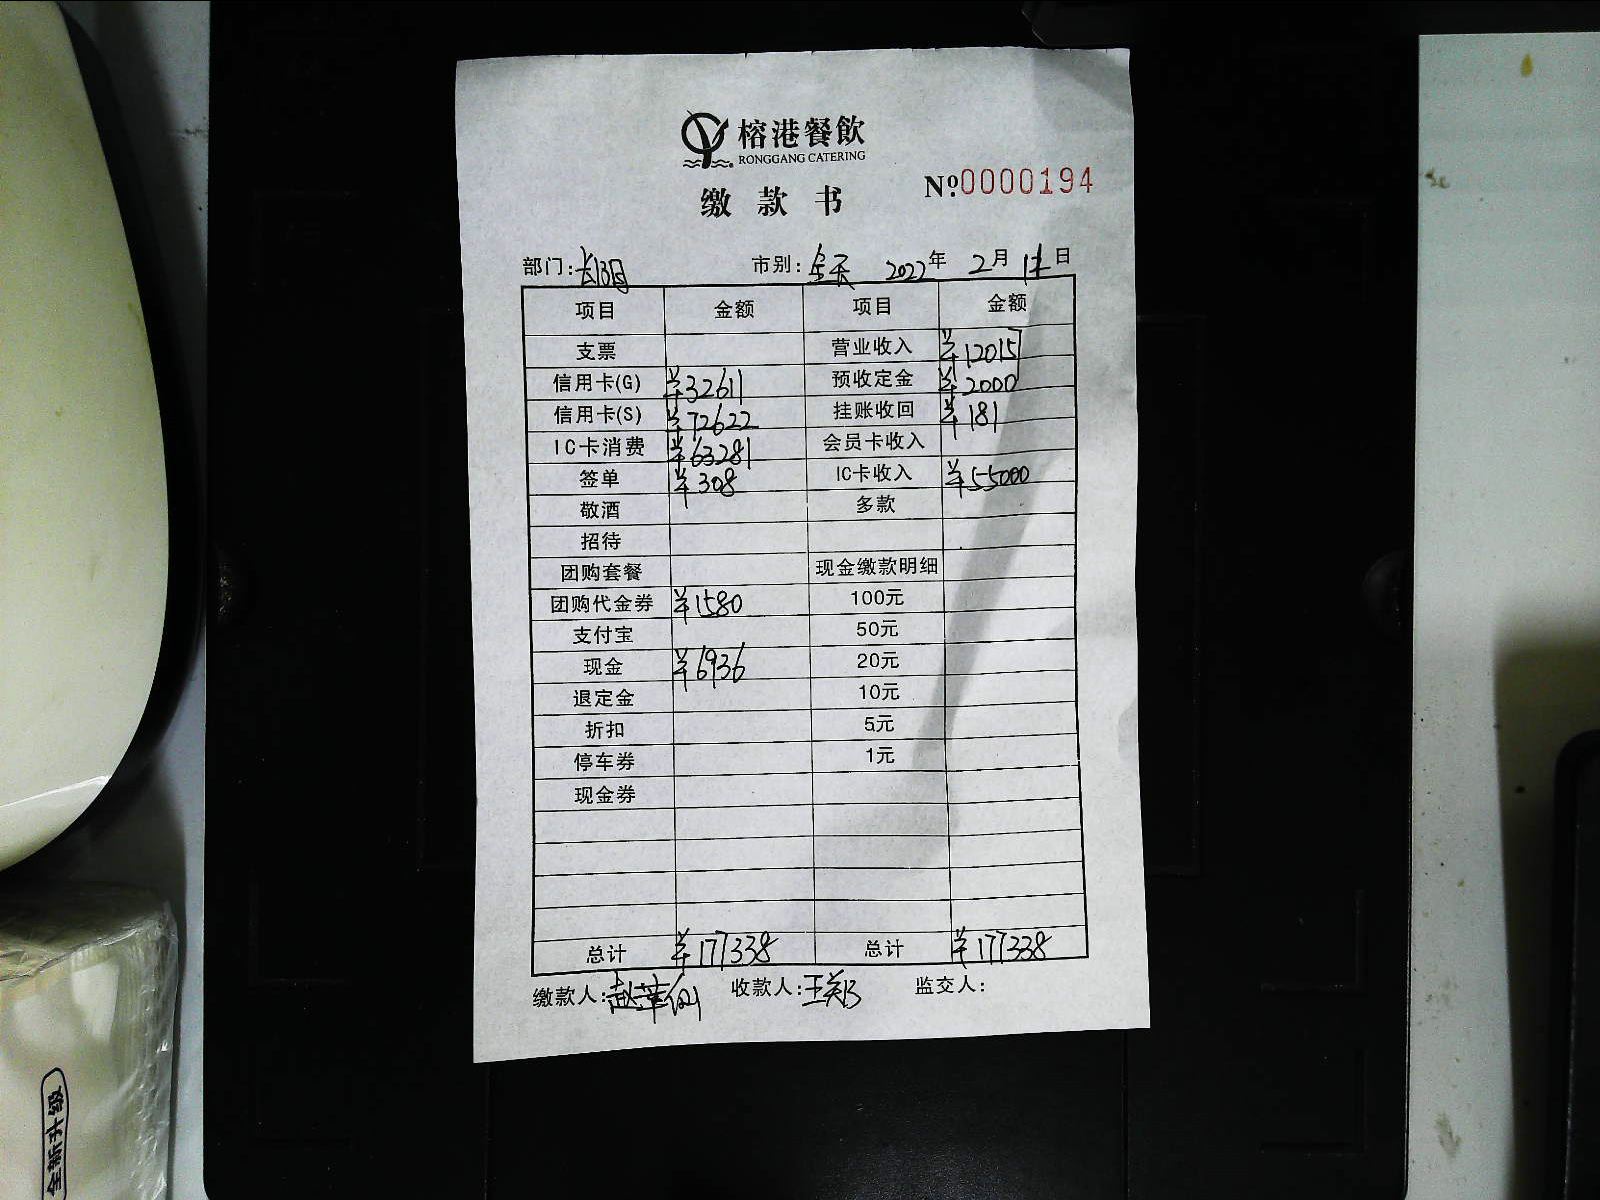 榕港餐飲
RONGGANG CATERING
缴款书
№0000194
部门: 市别:全天 2022年 2月 日
项目 金额 项目 金额
支票 营业收入 ¥120157
信用卡(G) ¥32611 预收定金 ¥2000
信用卡(S) ¥72622 挂账收回 ¥181
IC卡消费 ¥63281 会员卡收入
签单 ¥308 IC卡收入 ¥55000
敬酒 多款
招待
团购套餐 现金缴款明细
团购代金券 ¥1580 100元
支付宝 50元
现金 ¥6936 20元
退定金 10元
折扣 5元
停车券 1元
现金券
总计 ¥177338 总计 ¥177338
缴款人: 收款人: 监交人:
全新升级